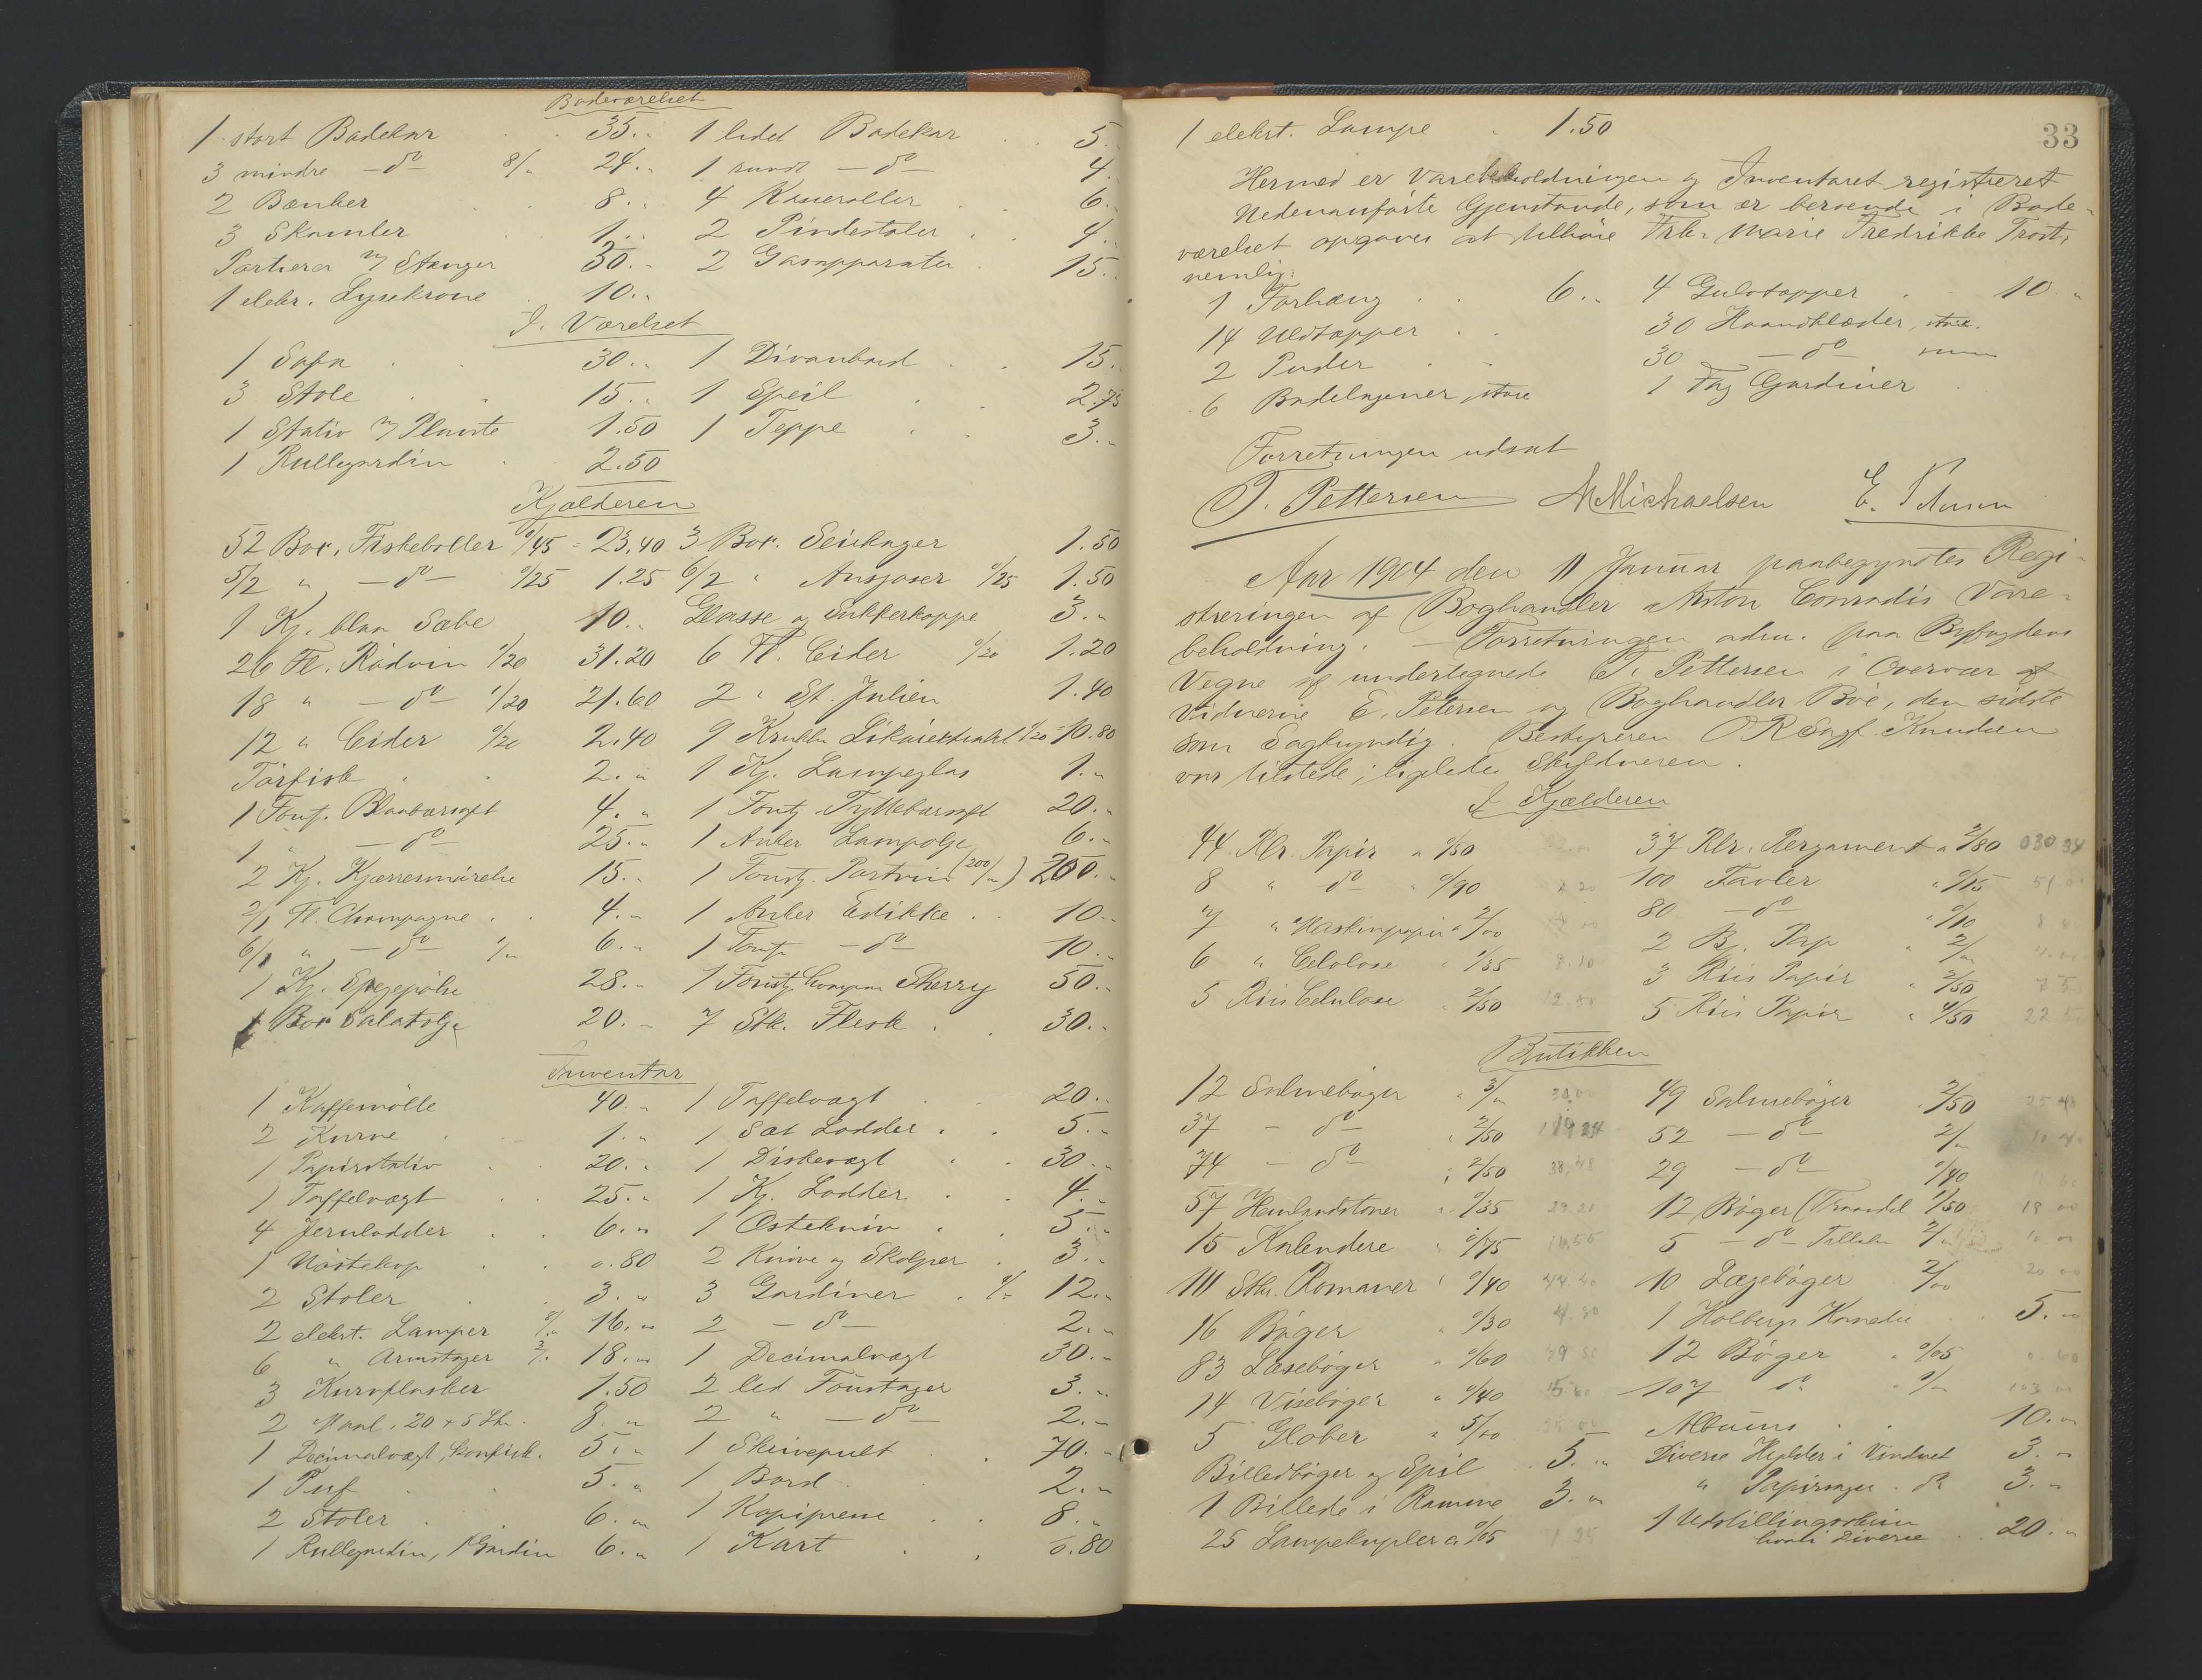 Badeværelset
1 stort Badekar 35.. 1 lidet Badekar 5..
3 mindre - do - 8/.. 24.. 1 rundt - do - 4..
2 Bænker 8.. 4 Kaseroller 6..
3 Skamler 1.. 2 Pindestoler 4..
Portierer m/ Stænger 30.. 2 Gasapparater 15..
1 elekr. Lysekrone 10..
I. Værelset
1 Sofa 30.. 1 Divanbord 15..
3 Stole 15.. 1 Speil 2.75
1 Stativ m/ Plante 1.50 1 Teppe 3..
1 Rullegardin 2.50
Kjælderen
52 Box. Fiskeboller 0/45 = 23.40 3 Box. Seilager 1.50
5/2 " - do - 0/25 1.25 6/2 " Ansjoser 0/25 1.50
1 Kj. blaa Sæbe 10.. Glasse og Sukkerkoppe 3..
26 Fl. Rødvin 1/20 31.20 6 Fl. Cider 0/20 1.20
18 " - do - 1/20 21.60 2 " St. Julien 1.40
12 " Cider 0/20 2.40 9 1/20 = 10.80
Tørfisk 2.. 1 Kj. Lampeglas 1..
1 Fout. Blaabærsaft 4.. 1 Foust. Tyttebærsaft 20..
1 " - do - 25.. 1 Anker Lampolje 6..
2 Kj. Kjærresmørelse 15.. 1 Foust. Portvin (200/..) 200..
2/1 Fl. Champagne 4.. 1 Anker Edikke 10..
6/1 " - do - 1/.. 6.. 1 Foust. - do - 10..
1 Kj. Spegepølse 28.. 1 Foust. Sherry 50..
1 Box Salatolje 20.. 7 Stk. Flesk 30..
Inventar
1 Kaffemølle 40.. 1 Taffelvægt 20..
2 Kurve 1.. 1 Sæt Lodder 5..
1 Papirstativ 20.. 1 Diskevægt 30..
1 Taffelvægt 25.. 1 Kj. Lodder 4..
4 Jernlodder 6.. 1 Ostekniv 5..
1 0.80 2 Knive og Skolper 3..
2 Stoler 3.. 3 Gardiner 12..
2 elekt. Lamper 8/.. 16.. 2 - do - 2..
6 " Armstager 3/.. 18.. 1 Decimalvægt 30..
3 Kurvflasker 1.50 2 led Foustager 3..
2 Maal, 20 + 5 Ltr. 8.. 2 " - do - 2..
1 Decimalvægt, konfisk. 5.. 1 Skrivepult 70..
1 Puf 5.. 1 Bord 2..
2 Stoler 6.. 1 Kopipresse 8..
1 Rullegardin, 1 Gardin 6.. 1 Kart 0.80
33
1 elekt. Lampe 1.50
Hermed er Varebeholdningen og Inventaret registreret
Nedenanførte Gjenstande, som er beroende i Bade-
værelset opgaves at tilhøre Frk. Marie Fredrikke Trost,
nemlig:
1 Forhæng 6.. 4 Gulvtepper 10..
14 Uldtæpper 30 Haandklæder, store.
2 Puder 30 - do - smaa
6 Badelagener, store 1 Fag Gardiner
Forretningen udsat
T. Pettersen M Michaelsen
Aar 1904 den 11 Januar paabegyndtes Regi-
streringen af Boghandler Anton Conradis Vare-
beholdning. - Forretningen adm. paa Byfogdens
Vegne af undertegnede T. Pettersen i Overvær af
Vidnerne E. Petersen og Boghandler Bøe, den sidste
som Sagkyndig. Bestyreren ORSagf. Knudsen
var tilstede; ligeledes Skyldneren.
I Kjælderen
44 Rlr. Papir a 0/50 37 Rlr. Pergament a 2/80
8 " do " 0/90 100 Tavler " 0/15
7 " Maskinpapir 2/00 80 - do - " 0/10
6 " Celolose " 1/35 2 Bj. Pap " 2/..
5 Riis Celulose " 2/50 3 Riis Papir " 2/50
5 Riis Papir " 4/50
Butikken
12 Salmebøger " 3/.. 49 Salmebøger " 2/50
37 - do - " 2/50 52 - do - " 2/..
74 - do - " 2/50 29 - do - " 0/40
57 Hemlandstoner " 0/35 12 Bøger (Traandal 1/50
15 Kalendere " 0/75 5 - do - 2/..
111 Stk. Romaner " 0/40 10 Lægebøger 2/00
16 Bøger " 0/30 1 Holbergs Komedie 5..
83 Læsebøger " 0/60 12 Bøger " 0/05
14 Visebøger " 0/40 107 do " 1/..
5 Glober " 5/00 Albums 10..
Billedbøger og Spil 5.. Diverse Hylder i Vinduet 3..
1 Billede i Ramme 3.. " Papirsager do 3..
25 Lampekupler a 0/05 1 Udstillingsskrin
hvori Diverse 20..